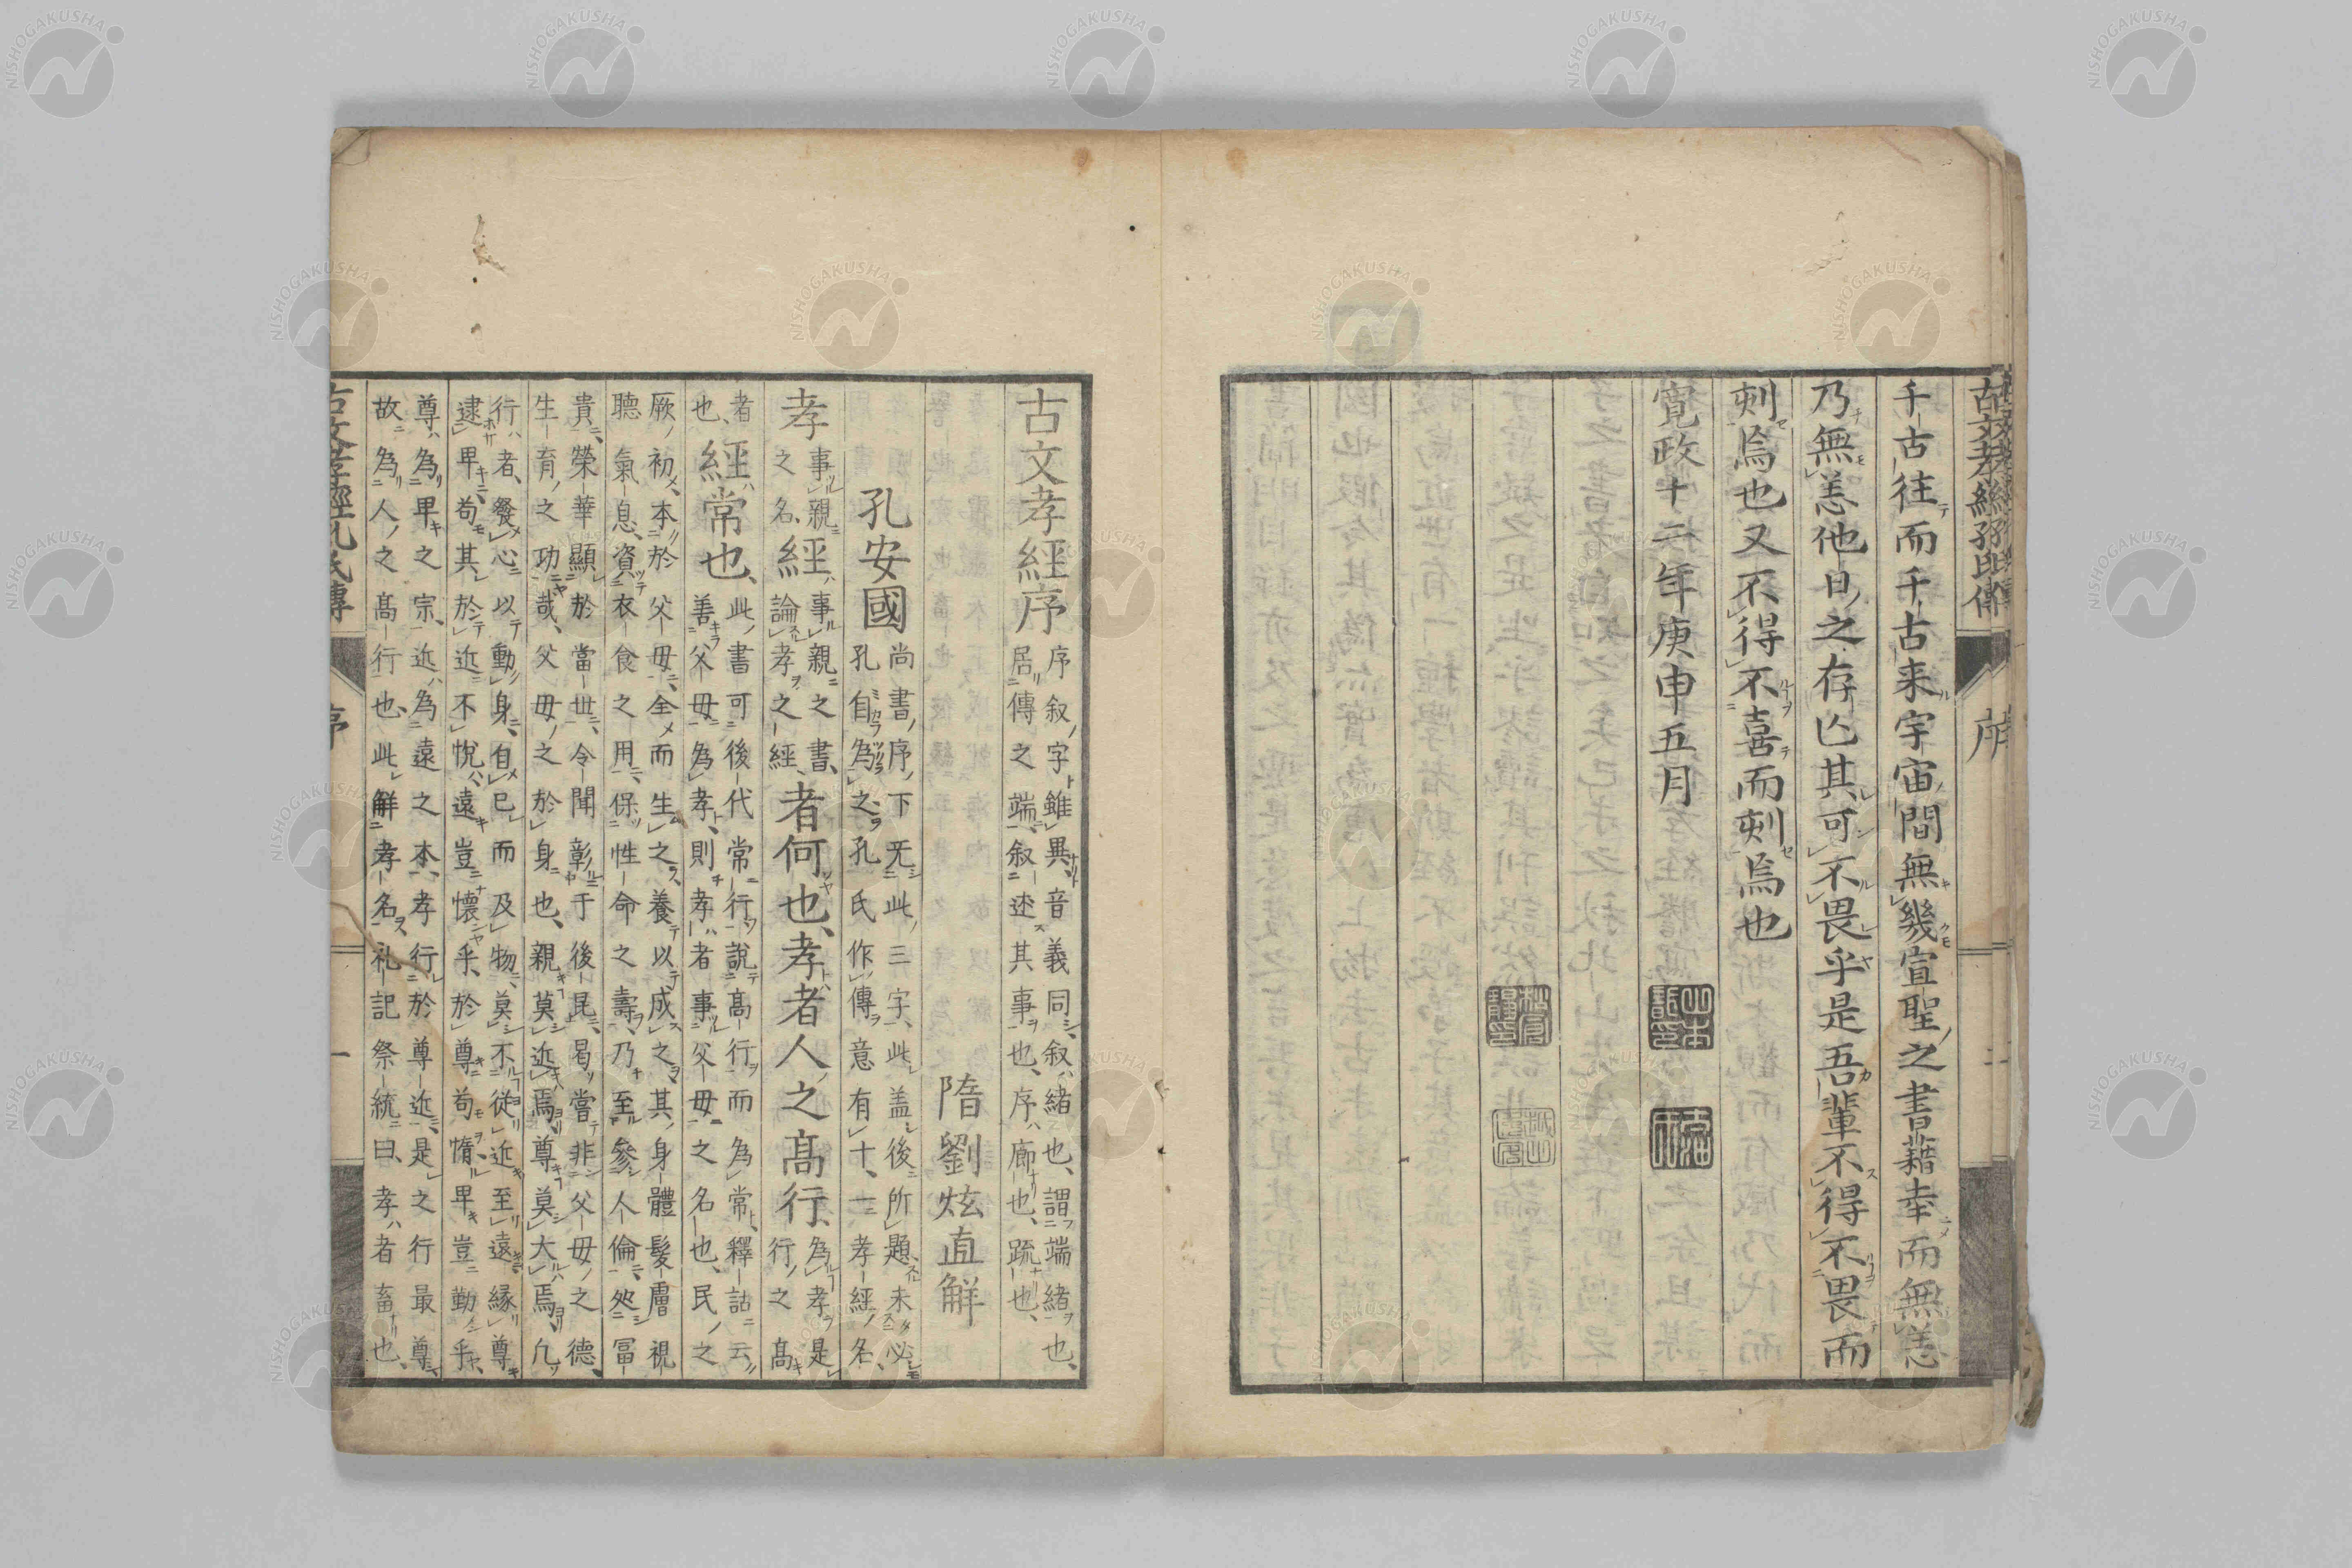 千古往而千古来宇宙間無幾宣聖之書藉幸而無恙
乃無恙他日之存亾其可不畏乎是吾輩不得不畏而
刾焉也又不得不喜而刾焉也
寛政十二年庚申五月
古文孝經序
序叙字雖異音義同叙緒也謂端緒也
居傳之端叙述其事也序廊也疏也
隋劉炫直解
孔安國
尚書序下无此三字此盖後所題未必
孔自為之孔氏作傳意有十一孝經名
孝
事親之名
經
事親之書
論孝之經
者何也孝者人之髙行
為孝是
行之髙
者
也
經常也
此書可後代常行說髙行而為常釋詁云
善父母為孝則孝者事父母之名也民之
厥初本於父母全而生之養以成之其身體髮膚視
聽氣息資衣食之用保性命之壽乃至參人倫処冨
貴榮華顯於當世令聞彰于後昆曷嘗非父母之德
生育之功哉父母之於身也親莫近焉尊莫大焉凢
行者發心以動身自巳而及物莫不從近至遠縁尊
逮早苟其於近不悅遠豈懷乎於尊苟惰早豈勤乎
尊為早之宗近為遠之本孝行於尊近是之行最尊
故為人之髙行也此解孝名礼記祭統曰孝者畜也
古文孝經孔氏傳
序
一
NISHOGAKUSHA